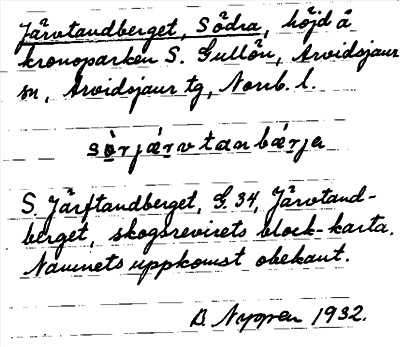 Järvtandberget, Södra, höjd å
kronoparken S. Gullön, Arvidsjaur
sn, Arvidsjaur tg, Norrb. l.
sòrjærvtanbærja
S. Järftandberget, G. 34, Järvtand-
berget, skogsrevirets block-karta.
Namnets uppkomst obekant.
D. Nyppen 1932.